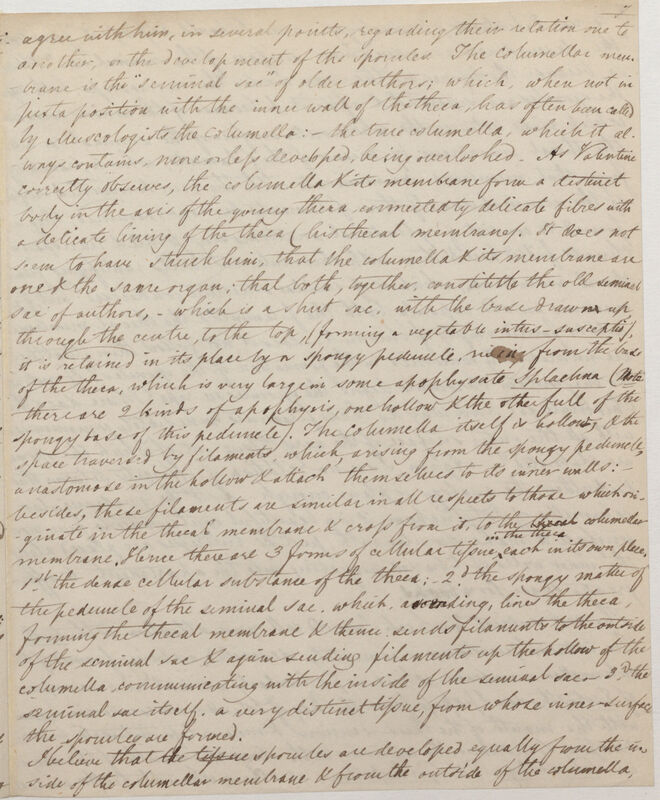 agree with him, in several points, regarding their relation one to
another, or the development of the sporules. The columellar mem-
-brane is the "seminal sac" of older authors; which, when not in
juxta position with the inner wall of the theca, has often been called
by Muscologists the Columella: - the true columella, which it al-
-ways contains, more or less developed, being overlooked. As Valentine
correctly observes, the columella & its membrane form a distinct
body in the axis of the young theca, connected by delicate fibres with
a delicate lining of the theca (his thecal membrane). It does not
seem to have struck him, that the columella & its membrane are
one & the same organ; that both, together, constitute the old seminal
sac of authors, - which is a shut sac, with the base drawn up
through the centre, to the top, (forming a vegetable intus-susceptio),
it is retained in its place by a spongy peduncle, rising from the base
of the theca, which is very large in some apophysate Splachna (Note
there are 2 kinds of apophysis, one hollow & the other full of the
spongy base of this peduncle). The columella itself is hollow, & the
space traversed by filaments, which, arising from the spongy peduncle,
anastomose in the hollow & attach themselves to its inner walls: -
besides, these filaments are similar in all respects to those which ori-
-ginate in the thecal membrane & cross from it, to the thecal columellar
membrane. Hence there are 3 forms of cellular tissue, in the theca each in its own place.
1st the dense cellular substance of the theca; - 2d the spongy matter of
the peduncle of the seminal sac, which, ascending, lines the theca,
forming the thecal membrane & thence sends filaments to the outside
of the seminal sac & again sending filaments up the hollow of the
columella, communicating with the inside of the seminal sac - 3d. the
seminal sac itself. a very distinct tissue, from whose inner surface
the sporules are formed.
I believe that the tissue sporules are developed equally from the in-
side of the columellar membrane & from the outside of the columella,